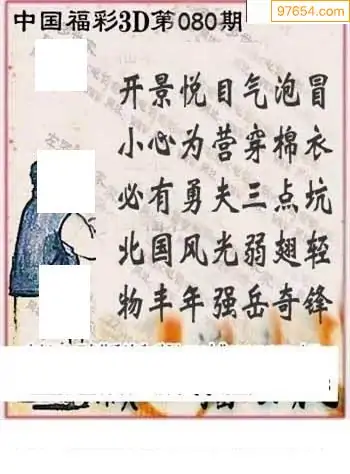 中国福彩3D第080期
97654.com
开景悦目气泡冒
小心为营穿棉衣
必有勇夫三点坑
北国风光弱翅轻
物丰年强岳奇锋